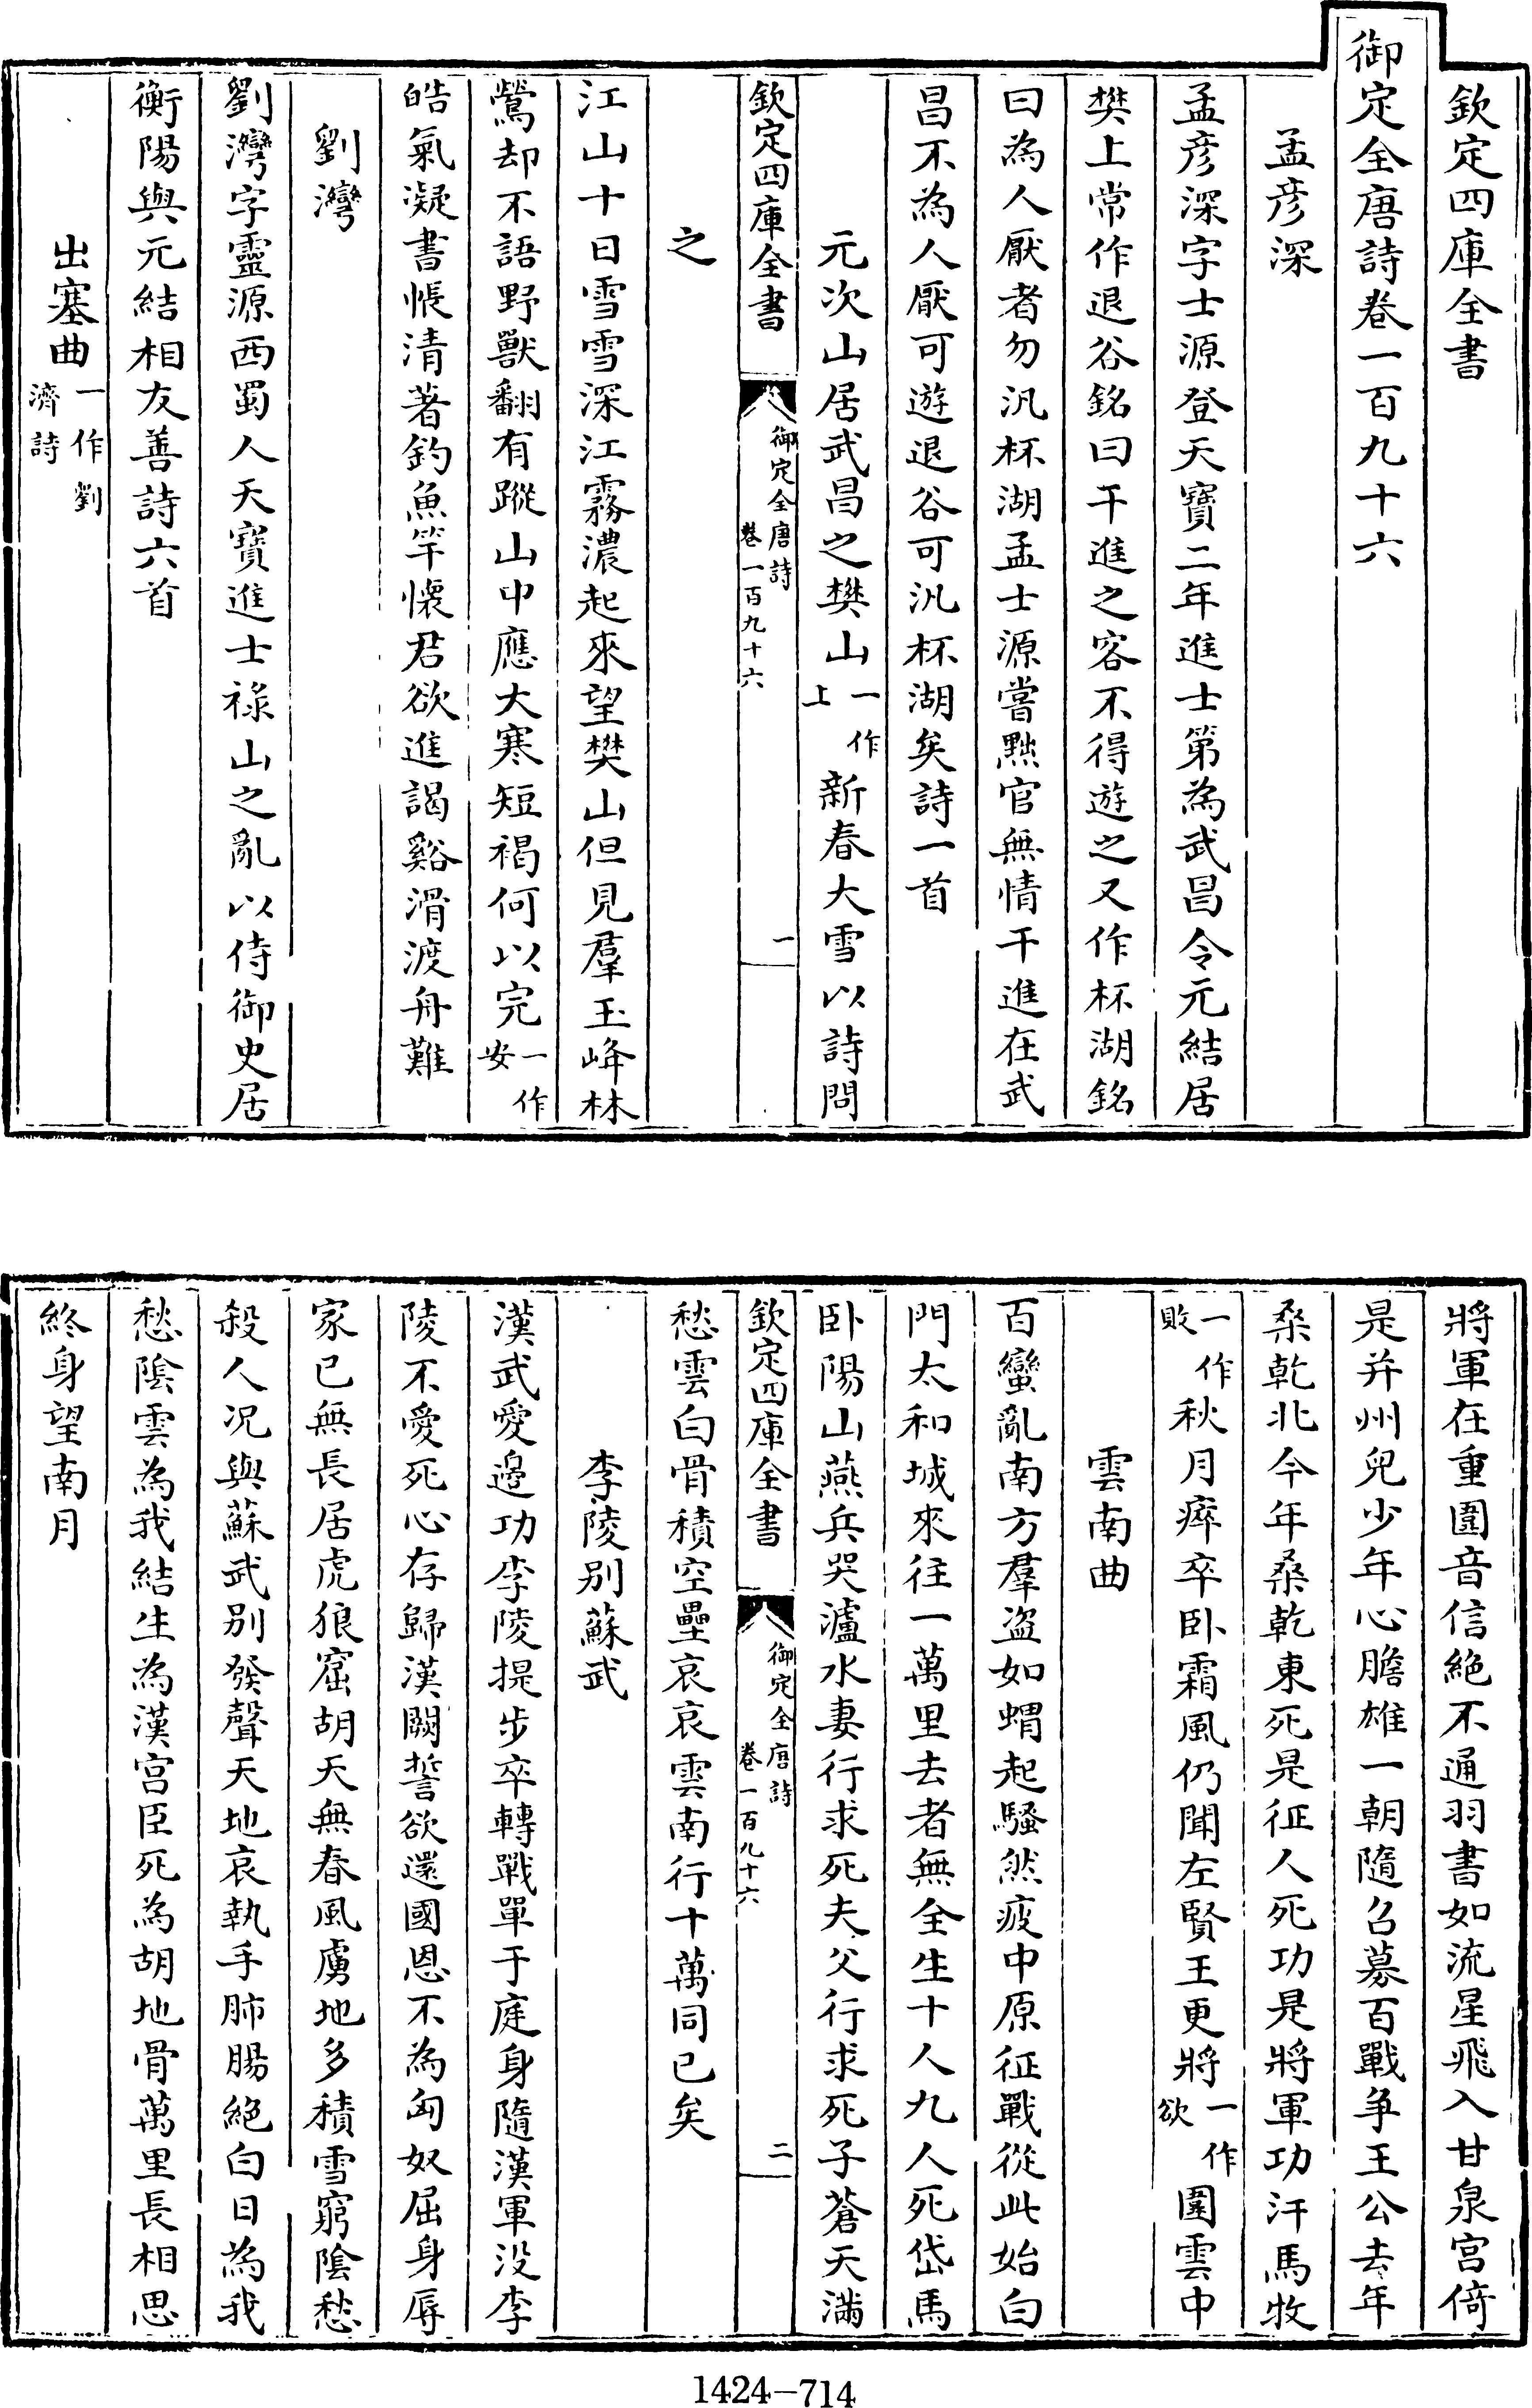 欽定四庫全書
御定全唐詩卷一百九十六
孟彦深
孟彦深字士源登天寶二年進士第為武昌令元結居
樊上常作退谷銘曰干進之客不得遊之又作杯湖銘
曰為人厭者勿汎杯湖孟士源嘗黜官無情干進在武
昌不為人厭可遊退谷可汎杯湖矣詩一首
元次山居武昌之樊山一作上新春大雪以詩問
欽定四庫全書 御定全唐詩 卷一百九十六 一
之
江山十日雪雪深江霧濃起來望樊山但見羣玉峰林
鶯却不語野獸翻有蹤山中應大寒短褐何以完一作安
皓氣凝書帳清著釣魚竿懷君欲進謁谿滑渡舟難
劉灣
劉灣字靈源西蜀人天寶進士祿山之亂以侍御史居
衡陽與元結相友善詩六首
出塞曲一作劉濟詩
將軍在重圍音信絶不通羽書如流星飛入甘泉宫倚
是并州兒少年心膽雄一朝隨召募百戰争王公去年
桑乾北今年桑乾東死是征人死功是將軍功汗馬牧
一作敗秋月瘁卒卧霜風仍聞左賢王更將一作欲圍雲中
雲南曲
百蠻亂南方羣盗如蝟起騷然疲中原征戰從此始白
門太和城來往一萬里去者無全生十人九人死岱馬
卧陽山燕兵哭瀘水妻行求死夫父行求死子蒼天滿
欽定四庫全書 御定全唐詩 卷一百九十六 二
愁雲白骨積空壘哀哀雲南行十萬同已矣
李陵别蘇武
漢武愛邊功李陵提步卒轉戰單于庭身隨漢軍没李
陵不愛死心存歸漢闕誓欲還國恩不為匈奴屈身辱
家已無長居虎狼窟胡天無春風虜地多積雪窮陰愁
殺人况與蘇武别發聲天地哀執手肺腸絶白日為我
愁陰雲為我結生為漢宫臣死為胡地骨萬里長相思
終身望南月
1424-714